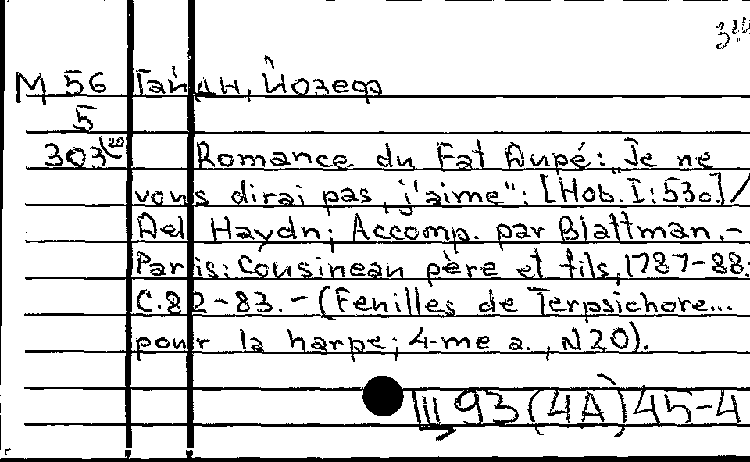 М 56 Гайдн, Йозеф
5
303 Romance du Fat Dupé: „Je ne
vous dirai pas, j'aime": [Hob. I:53c] /
Del Haydn; Accomp. par Blattman.-
Paris: Cousineau père et fils, 1787-88.
C.82-83.-(Feuilles de Terpsichore...
pour la harpe; 4-me a., N20).
III 93(4A)45-4